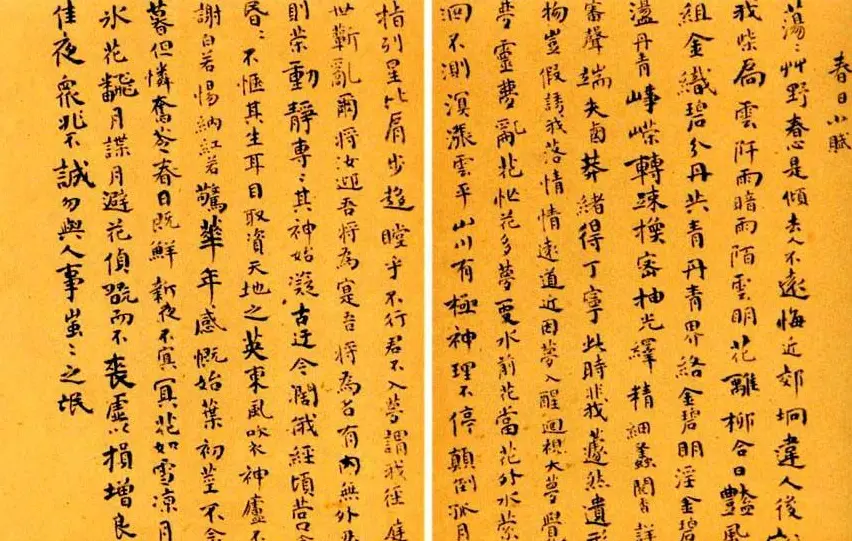 春日小賦
蕩〻艸野春心是傾去人不遠悔近郊坰違人後
我柴扃雲阡雨暗雨陌雲明花離柳合日豔風
組金織碧分丹共青丹青界絡金碧明淫金碧
盪丹青崢嶸轉疎換密抽光繹精細聽
審聲端失鹵莽緒得丁寧此時我蘧然遺形
物豈假誘我落情情遠道近因夢入醒迴視大夢覺
夢靈夢亂花忙花多夢要水前花當花外水縈
洄不測溟漲雲平山川有極神理不停顛倒孤月
指列星比肩步趨瞠乎不行君不入夢謂我徃庭
世靳亂爾將汝迎吾將為寔吾將為名有內無外
則榮動靜專〻其神始凝古迂今闊俄經頃
昏〻不愜其生耳目取資天地之英東風吹衣神廬不
謝白若惕納紅若驚華年感慨始葉初莖不
暮但憐奪蒼春日既鮮新夜不寘冥花如雪涼月
水花飜月諜月避花偵翫而不喪虛以損增良
佳夜衆兆不誠勿與人事蚩〻之氓